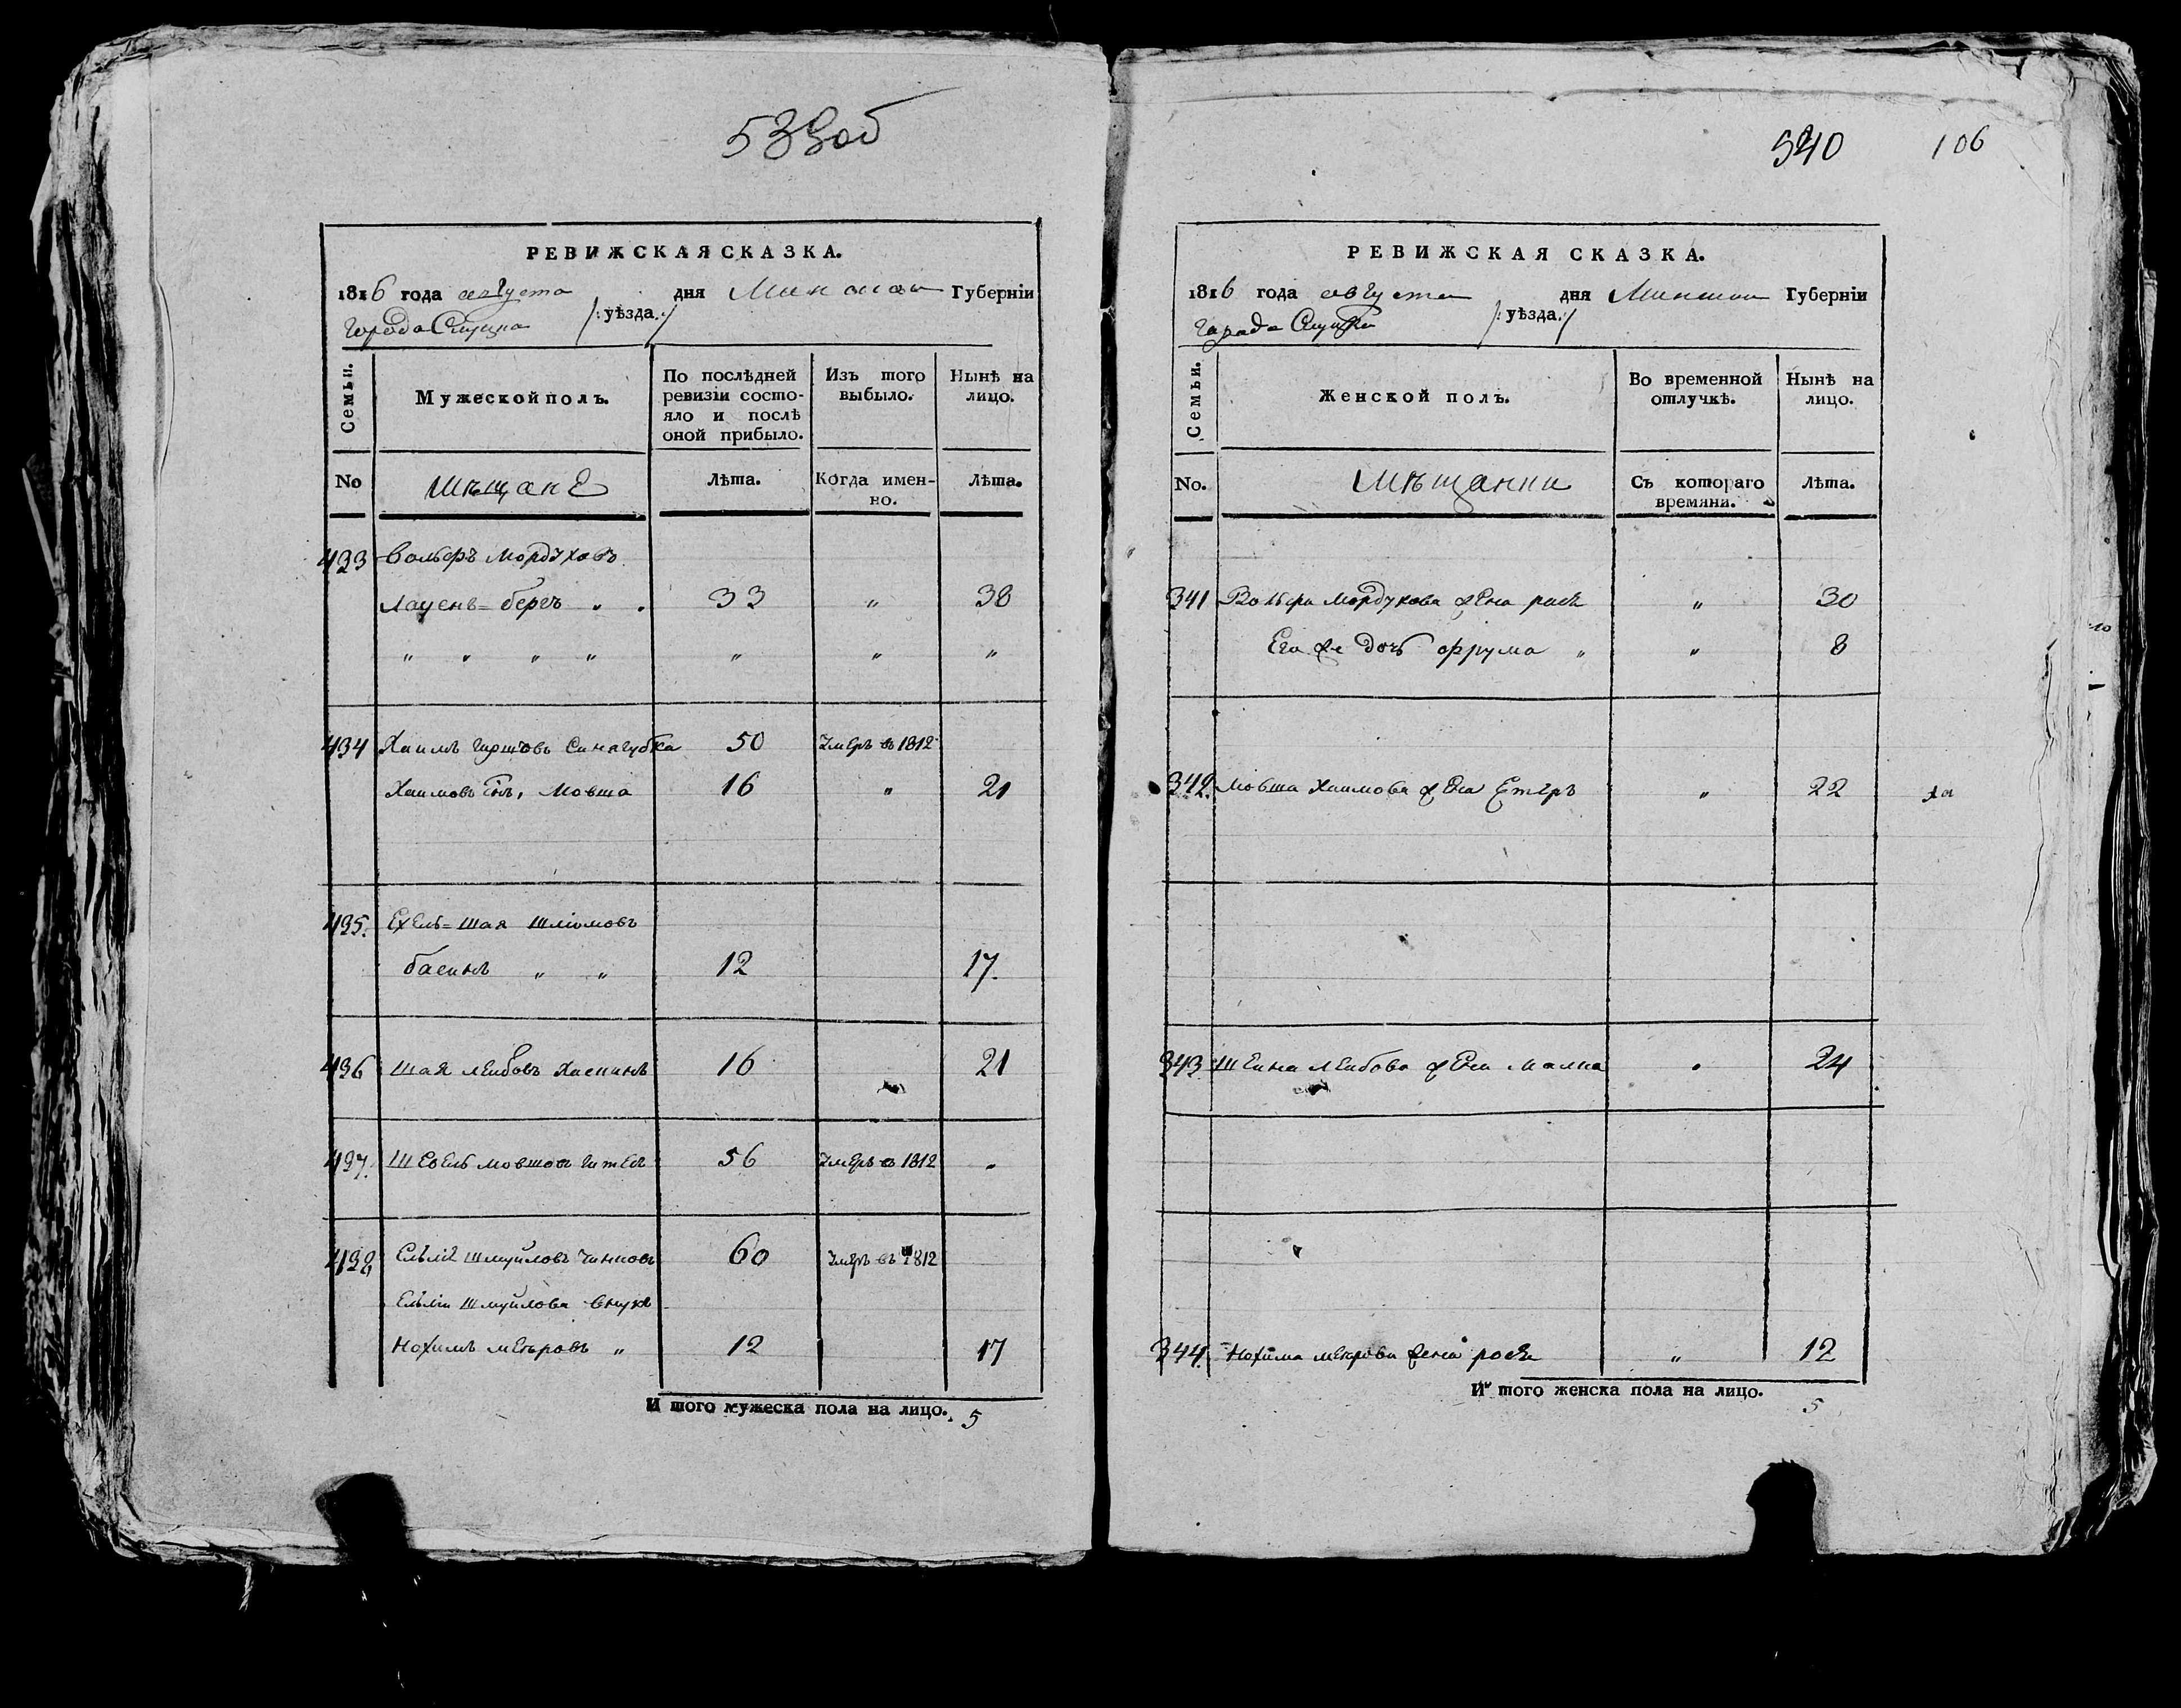 539об
РЕВИЖСКАЯ СКАЗКА.
1816 года августа дня Минской Губерніи
города Слуцка /:уѣзда:/
Семьи.
Мужеской полъ.
По послѣдней ревизіи состо-
яло и послѣ
оной прибыло.
Изъ того
выбыло.
Нынѣ на
лицо.
No
мѣщане
Лѣта.
Когда имен-
но.
Лѣта.
433 Вольфъ Мордуховъ
Лацень=бергъ „ „ 33 „ 38
„ „ „ „ „ „ „
434 Хаимъ Гиршовъ Синагубка 50 умеръ въ 1812
Хаимовъ Сынъ, Мовша 16 „ 21
435. Ехель=Шая Шліомовъ
басинъ „ „ 12 17.
436 Шая Леибовъ Хаепинъ 16 21
437. Шевель Мовшовъ 56 умеръ в 1812 „
438 Шмуйловъ 60 умеръ въ 1812
Шмуйлова внукъ
Нохимъ Меѣровъ „ 12 17
И того мужеска пола на лицо. 5
540 106
РЕВИЖСКАЯ СКАЗКА.
1816 года августа дня Минской Губерніи
города Слуцка /:уѣзда:/
Семьи.
Женской полъ.
Во временной
отлучкѣ.
Нынѣ на
лицо.
No.
Мѣщанки
Съ котораго
времяни.
Лѣта.
341 Вольфа Мордухова жена „ 30
Его же дочь Фрума „ „ 8
342. Мовша Хаимова жена Естеръ „ 22
343 Шеина Леибова жена Малка „ 24
344. Нохима Меѣрова жена „ 12
И того женска пола на лицо.
5